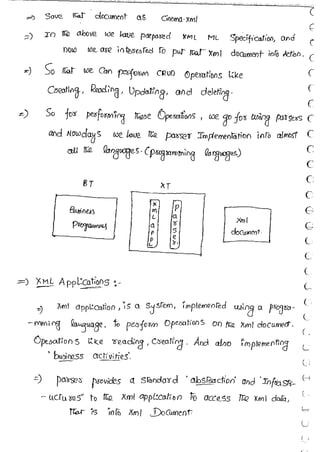 =) Save that document as Cinema.xml
=) In the above we have purposed XML ML Specification, and
now we are interested to put that xml document into Action.
=) So that we can perform CRUD Operations like
Creating, Reading, Updating, and deleting.
=) So for performing those Operations, we go for using parsers
and Nowdays we have the parser Implementation into almost
all the languages. (programming languages)
BT XT
Business
Programmes
X
M
L
A
P
P
L
P
a
r
s
e
r
Xml
document
=) XML Applications :-
=) Xml application, is a System, implemented using a progra-
-mming language, to perform Operations on the xml document.
Operations like reading, creating. And also implementing
'business activities'.
=) parsers provides a Standard 'abstraction' and 'Infrastr-
-uctures' to the Xml application to access the xml data,
that is into Xml Document.